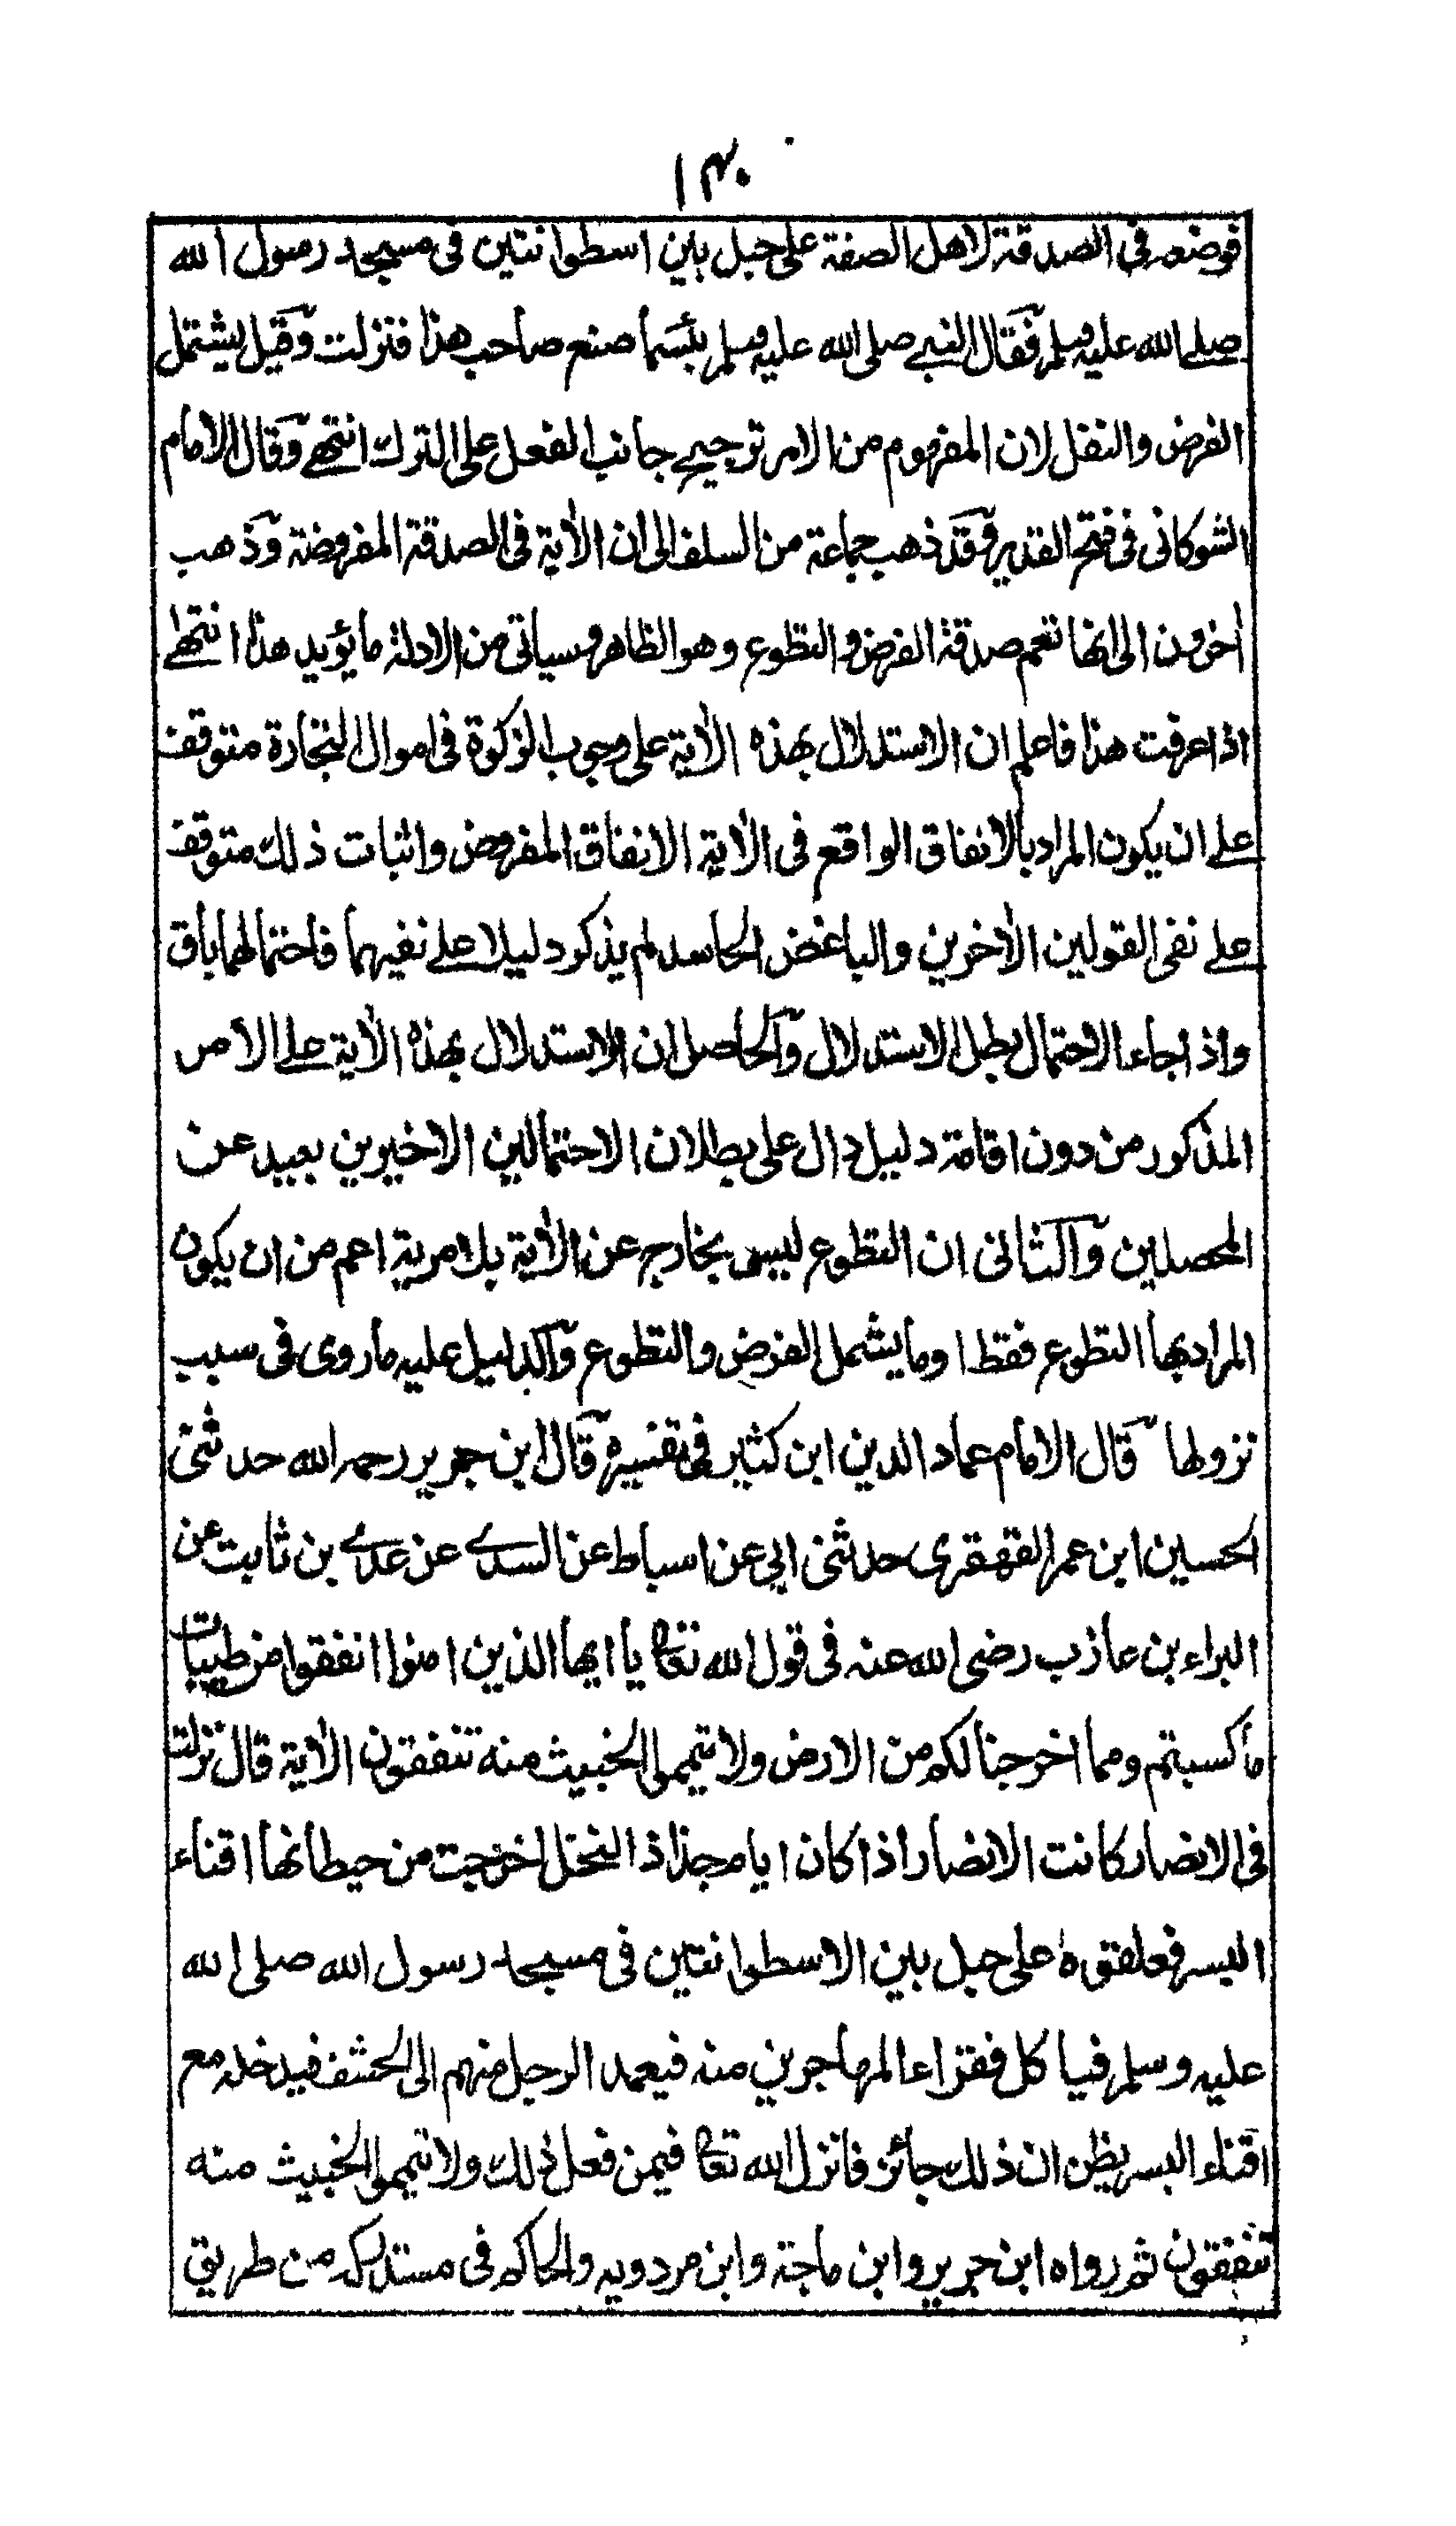 ١٤٠
فوضعه في الصدقة لاهل الصفة على حبل بين اسطوانتين فى مسجد رسول الله
صلى الله عليه وسلم فقال النبي صلى الله عليه وسلم بئسما صنع صاحب هذا فنزلت وقيل يشتمل
الفرض والنفل لان المفهوم من الامر ترجيح جانب الفعل على الترك انتهى وقال الامام
الشوكانى فى فتح القدير وقد ذهب جماعة من السلف الى ان الاٰية فى الصدقة المفروضة وذهب
اخرون الى انها تعم صدقة الفرض والتطوع وهو الظاهر وسياتى من الادلة ما يؤيد هذا انتهى
اذا عرفت هذا فاعلم ان الاستدلال بهذه الاٰية على وجوب الزكوة فى اموال التجارة متوقف
على ان يكون المراد بالانفاق الواقع فى الاٰية الانفاق المفروض واثبات ذلك متوقف
على نفى القولين الاٰخرين والباغض الحاسد لم يذكر دليلا على نفيهما فاحتمالهما باق
واذا جاء الاحتمال بطل الاستدلال والحاصل ان الاستدلال بهذه الاٰية على الامر
المذكور من دون اقامة دليل دال على بطلان الاحتمالين الاخيرين بعيد عن
المحصلين والثانى ان التطوع ليس بخارج عن الاٰية بلا مرية اعم من ان يكون
المراد بها التطوع فقط او ما يشمل الفرض والتطوع والدليل عليه ما روى فى سبب
نزولها قال الامام عماد الدين ابن كثير فى تفسيره قال ابن جرير رحمه الله حدثنى
الحسين ابن عمر القهقرى حدثنى ابي عن اسباط عن السدے عن عدے بن ثابت عن
البراء بن عاذب رضى الله عنه فى قول الله تعا يا ايها الذين امنوا انفقوا من طيبات
ما كسبتم ومما اخرجنا لكم من الارض ولا تيمموا الخبيث منه تنفقون الاٰية قال نزلت
فى الانصار كانت الانصار اذا كان ايام جذاذ النخل اخرجت من حيطانها اقناء
البسر فعلقوه على حبل بين الاسطوانتين فى مسجد رسول الله صلى الله
عليه وسلم فياكل فقراء المهاجرين منه فيعمد الرجل منهم الى الحشف فيدخله مع
اقناء البسر يظن ان ذلك جائز فانزل الله تعا فيمن فعل ذلك ولا تيمموا الخبيث منه
تنفقون ثم رواه ابن جرير وابن ماجة وابن مردويه والحاكم فى مستدركه من طريق